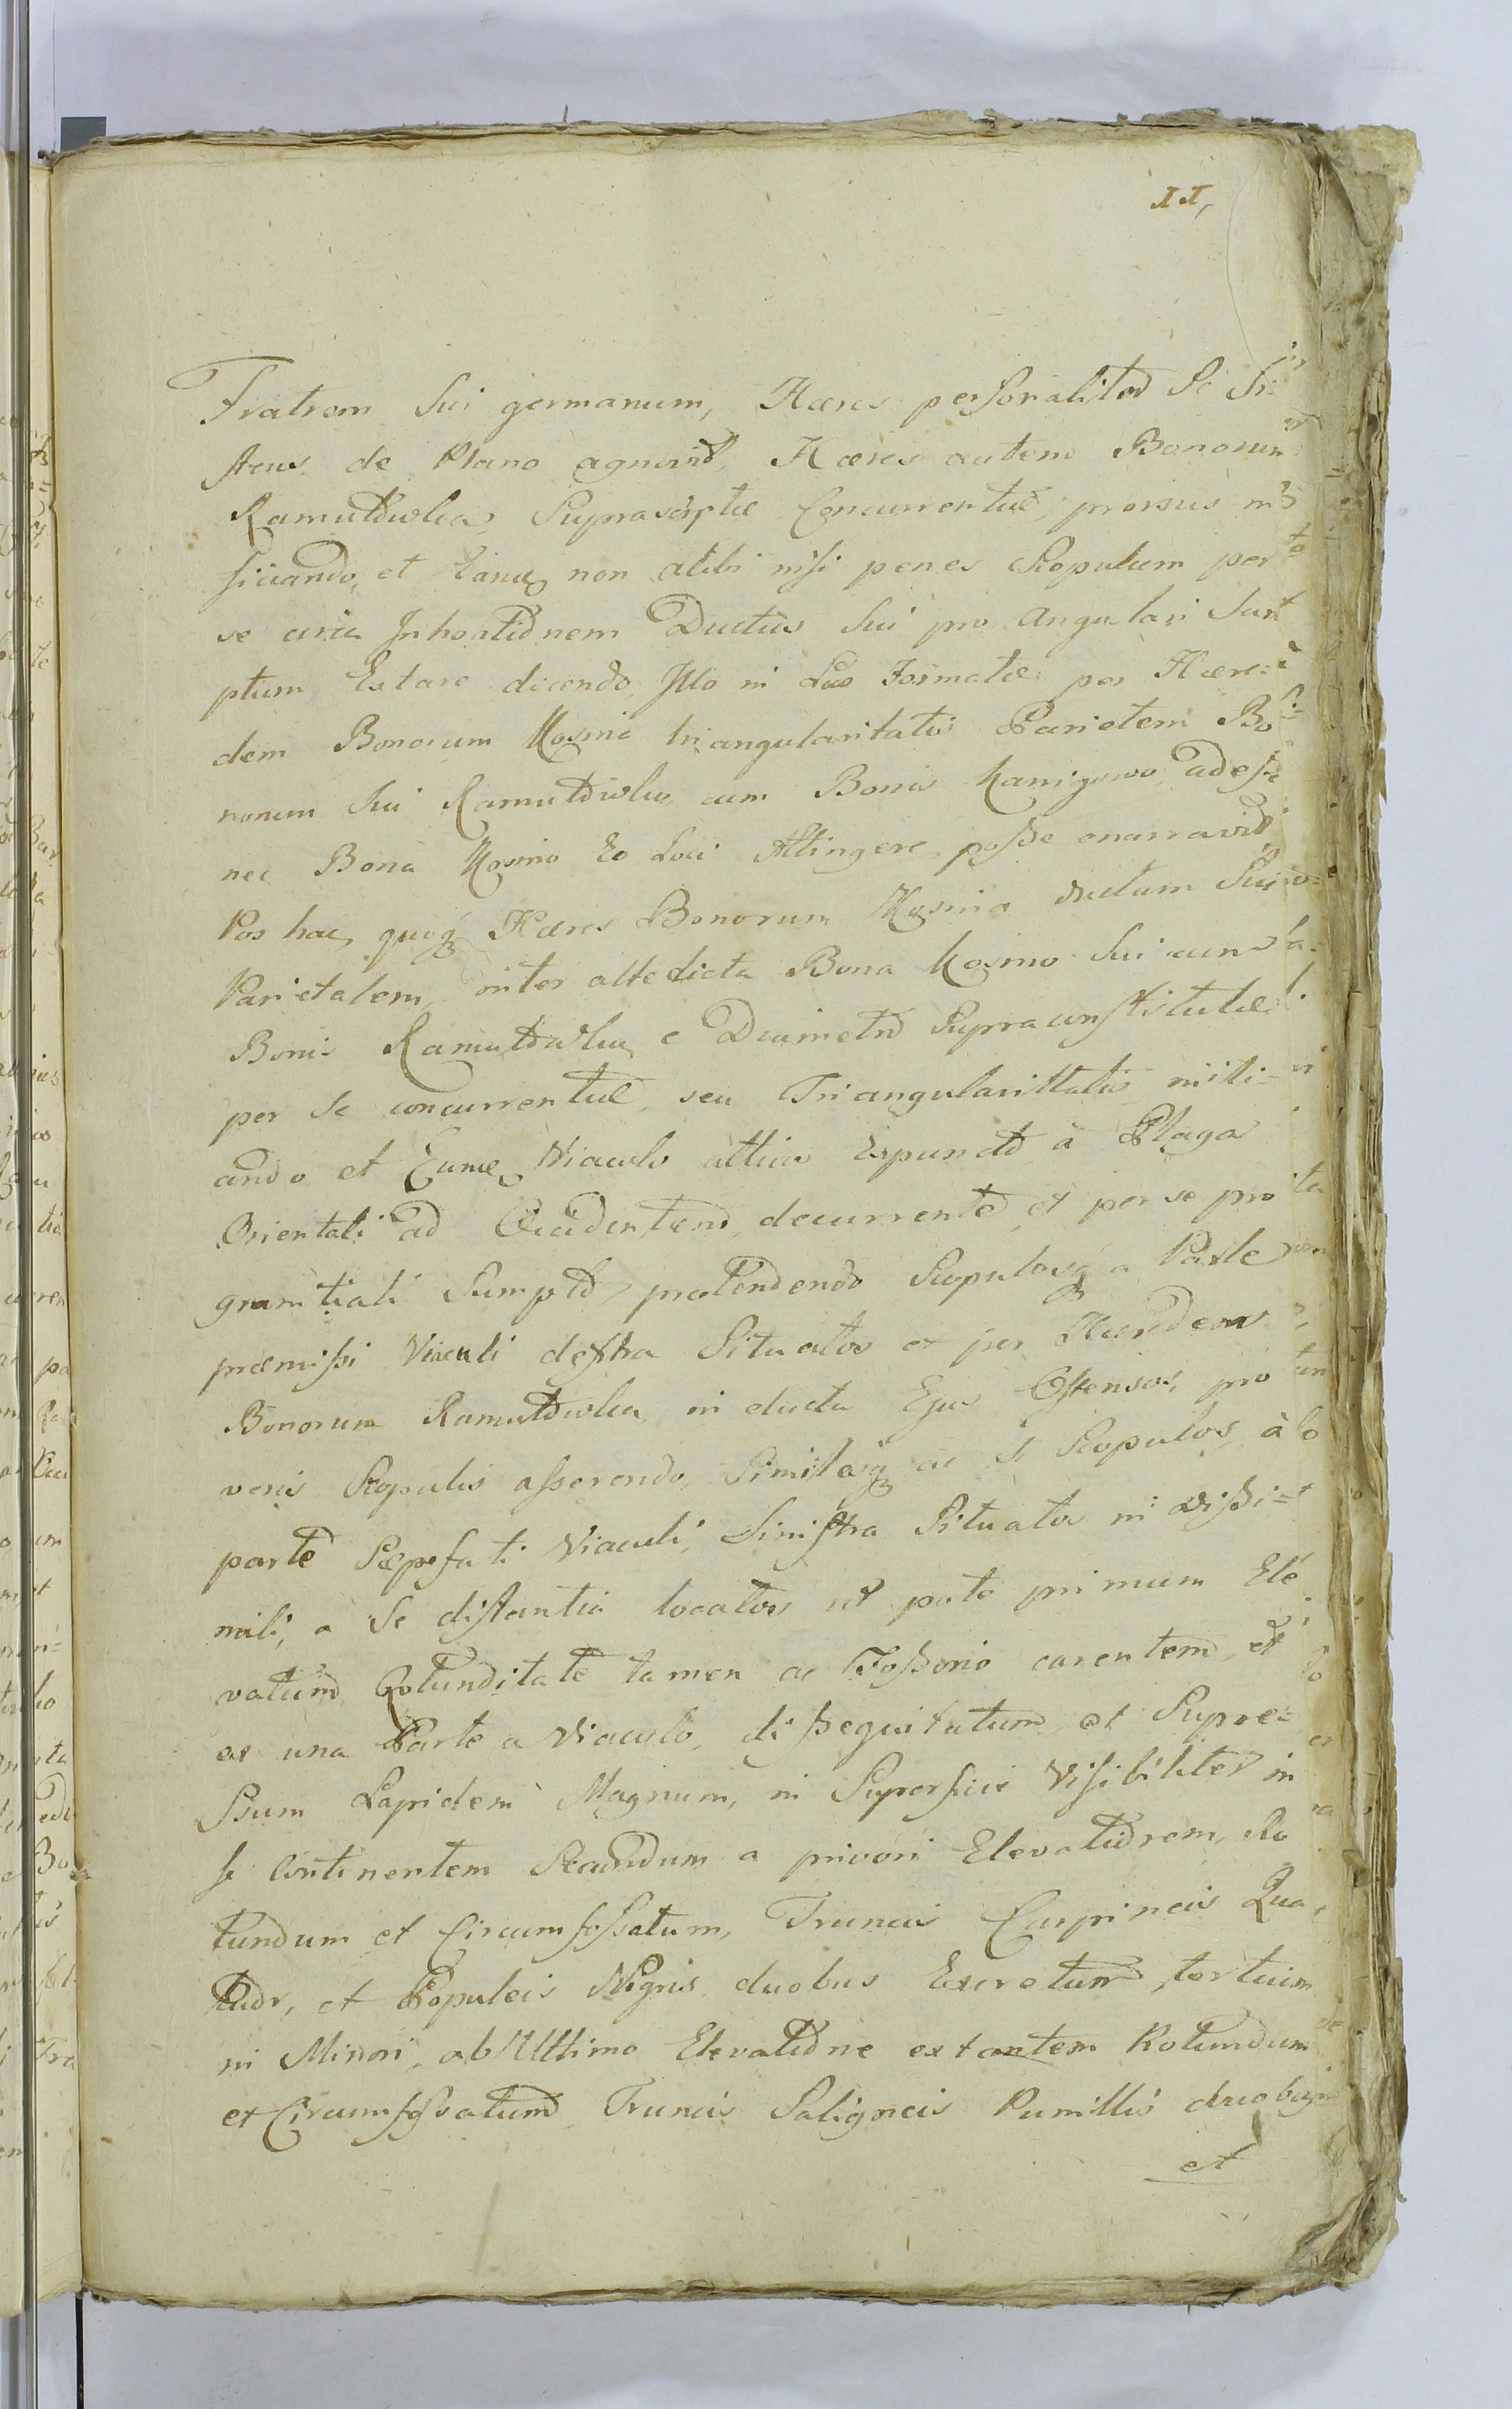 11,
Fratrem Sui germanum, Hæres personaliter Se Si-
stens de Plano agnovit, Hæres autem Bonorum
Ramutówka, Suprascriptæ Concurrentiæ, prorsus in-
ficiando, et Eamq non alibi nisi penes Scopulum per
se circa Inhoationem Ductus Sui pro Angulari Sum
ptum Extare dicendo, Illo in Loco Formatæ per Hære-
dem Bonorum Kosino triangularitatis Parietem Bo
norum Sui Ramutówka, cum Bonis Kanigowo, adesse
nec Bona Kosino Eo Loci Attingere posse enarravit
Pos hac, quoq Hæres Bonorum Kosino ductum Sui
Parietalem, inter attedicta Bona Kosino Sui cum
Bonis Ramutówka e Diametro Supraconstitutæ
per Se concurrentiæ, seu Triangularittatis initi-
ando et Eumq Viaculo attius Expuncto à Plaga
Orientali ad Occidentem decurrente et per se pro
gramitiali Sumpto, prætendendo Scopulosq a Parte
præmissi Viaculi dextra Situatos et per Hæredem
Bonorum Ramutówka in ductu Ejus Ostensos, pro
veris Scopulis asserendo, Similesq ac Si Scopulos, à
parte Sæpefati Viaculi, Sinistra Situatos in dissi-
mili, a Se distantia locatos ut pote primum Ele
vatum Rotunditate tamen ac Fossorio carentem, et
ex una Parte a Viaculo, disseguitatum et Supre-
ssum Lapidem Magnum, in Superficie Visibiliter in
se Continentem Secundum a priori Elevatiorem, Ro
tundum et Circumfossatum, Truncis Carpineis Qua,
tuor, et Populeis Nigris duobus Excretum, tertium
in Minori, ab Ultimo Elevatione extantem Rotundum
et Circumfossatum Truncis Saligneis Pumillis duobus
et